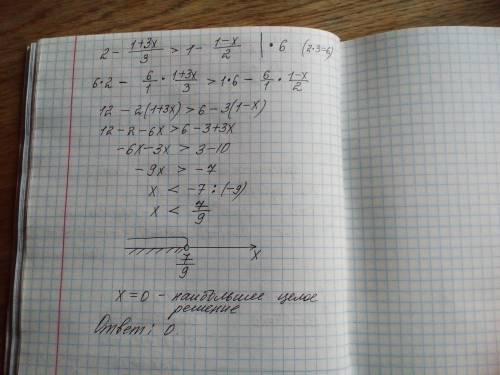 2 - (1+3x)/3 > 1 - (1-x)/2 | · 6 (2·3=6)
6·2 - 6/1 · (1+3x)/3 > 1·6 - 6/1 · (1-x)/2
12 - 2(1+3x) > 6 - 3(1-x)
12 - 2 - 6x > 6 - 3 + 3x
-6x - 3x > 3 - 10
-9x > -7
x < -7 : (-9)
x < 7/9
7/9 x
x = 0 - наибольшее целое
решение
Ответ: 0.